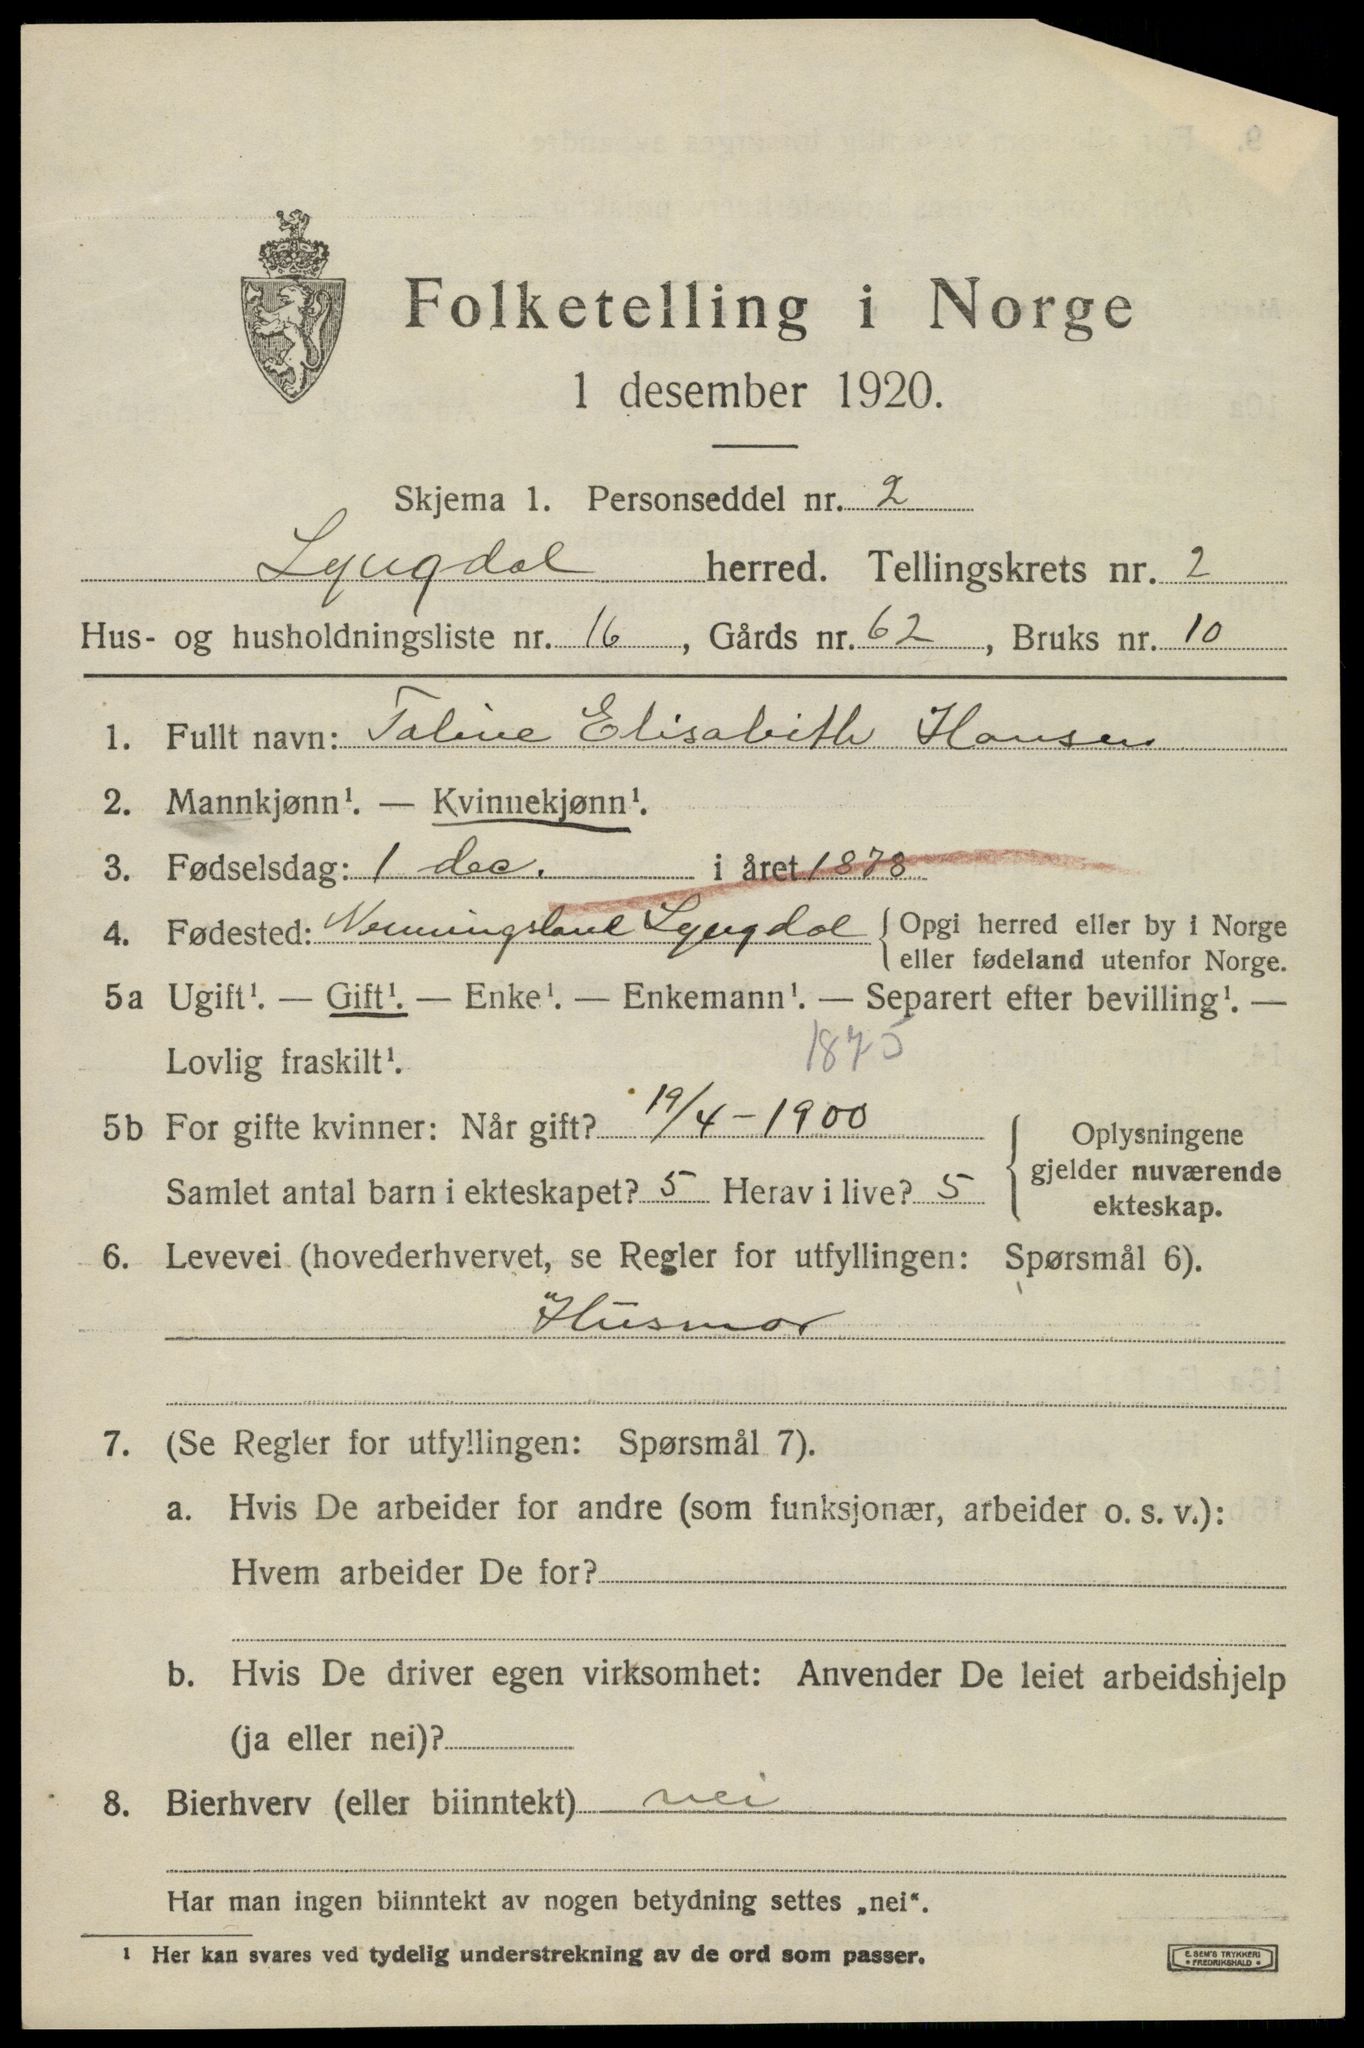 Folketelling i Norge
1 desember 1920.
Skjema 1. Personseddel nr. 2
Lyngdal herred. Tellingskrets nr. 2
Hus- og husholdningsliste nr. 16, Gårds nr. 62, Bruks nr. 10
1. Fullt navn: Taline Elisabeth Hansen
2. Mannkjønn¹. — Kvinnekjønn¹.
3. Fødselsdag: 1 dec. i året 1878
4. Fødested: Lyngdal { Opgi herred eller by i Norge
eller fødeland utenfor Norge.
5a Ugift¹. — Gift¹. — Enke¹. — Enkemann¹. — Separert efter bevilling¹. —
Lovlig fraskilt¹. 1875
5b For gifte kvinner: Når gift? 19/4 – 1900
Samlet antal barn i ekteskapet? 5 Herav i live? 5
{ Oplysningene
gjelder nuværende
ekteskap.
6. Levevei (hovederhvervet, se Regler for utfyllingen: Spørsmål 6).
Husmor
7. (Se Regler for utfyllingen: Spørsmål 7).
a. Hvis De arbeider for andre (som funksjonær, arbeider o. s. v.):
Hvem arbeider De for?
b. Hvis De driver egen virksomhet: Anvender De leiet arbeidshjelp
(ja eller nei)?
8. Bierhverv (eller biinntekt) nei
Har man ingen biinntekt av nogen betydning settes „nei“.
¹ Her kan svares ved tydelig understrekning av de ord som passer.
E. SEM'S TRYKKERI
FREDRIKSHALD